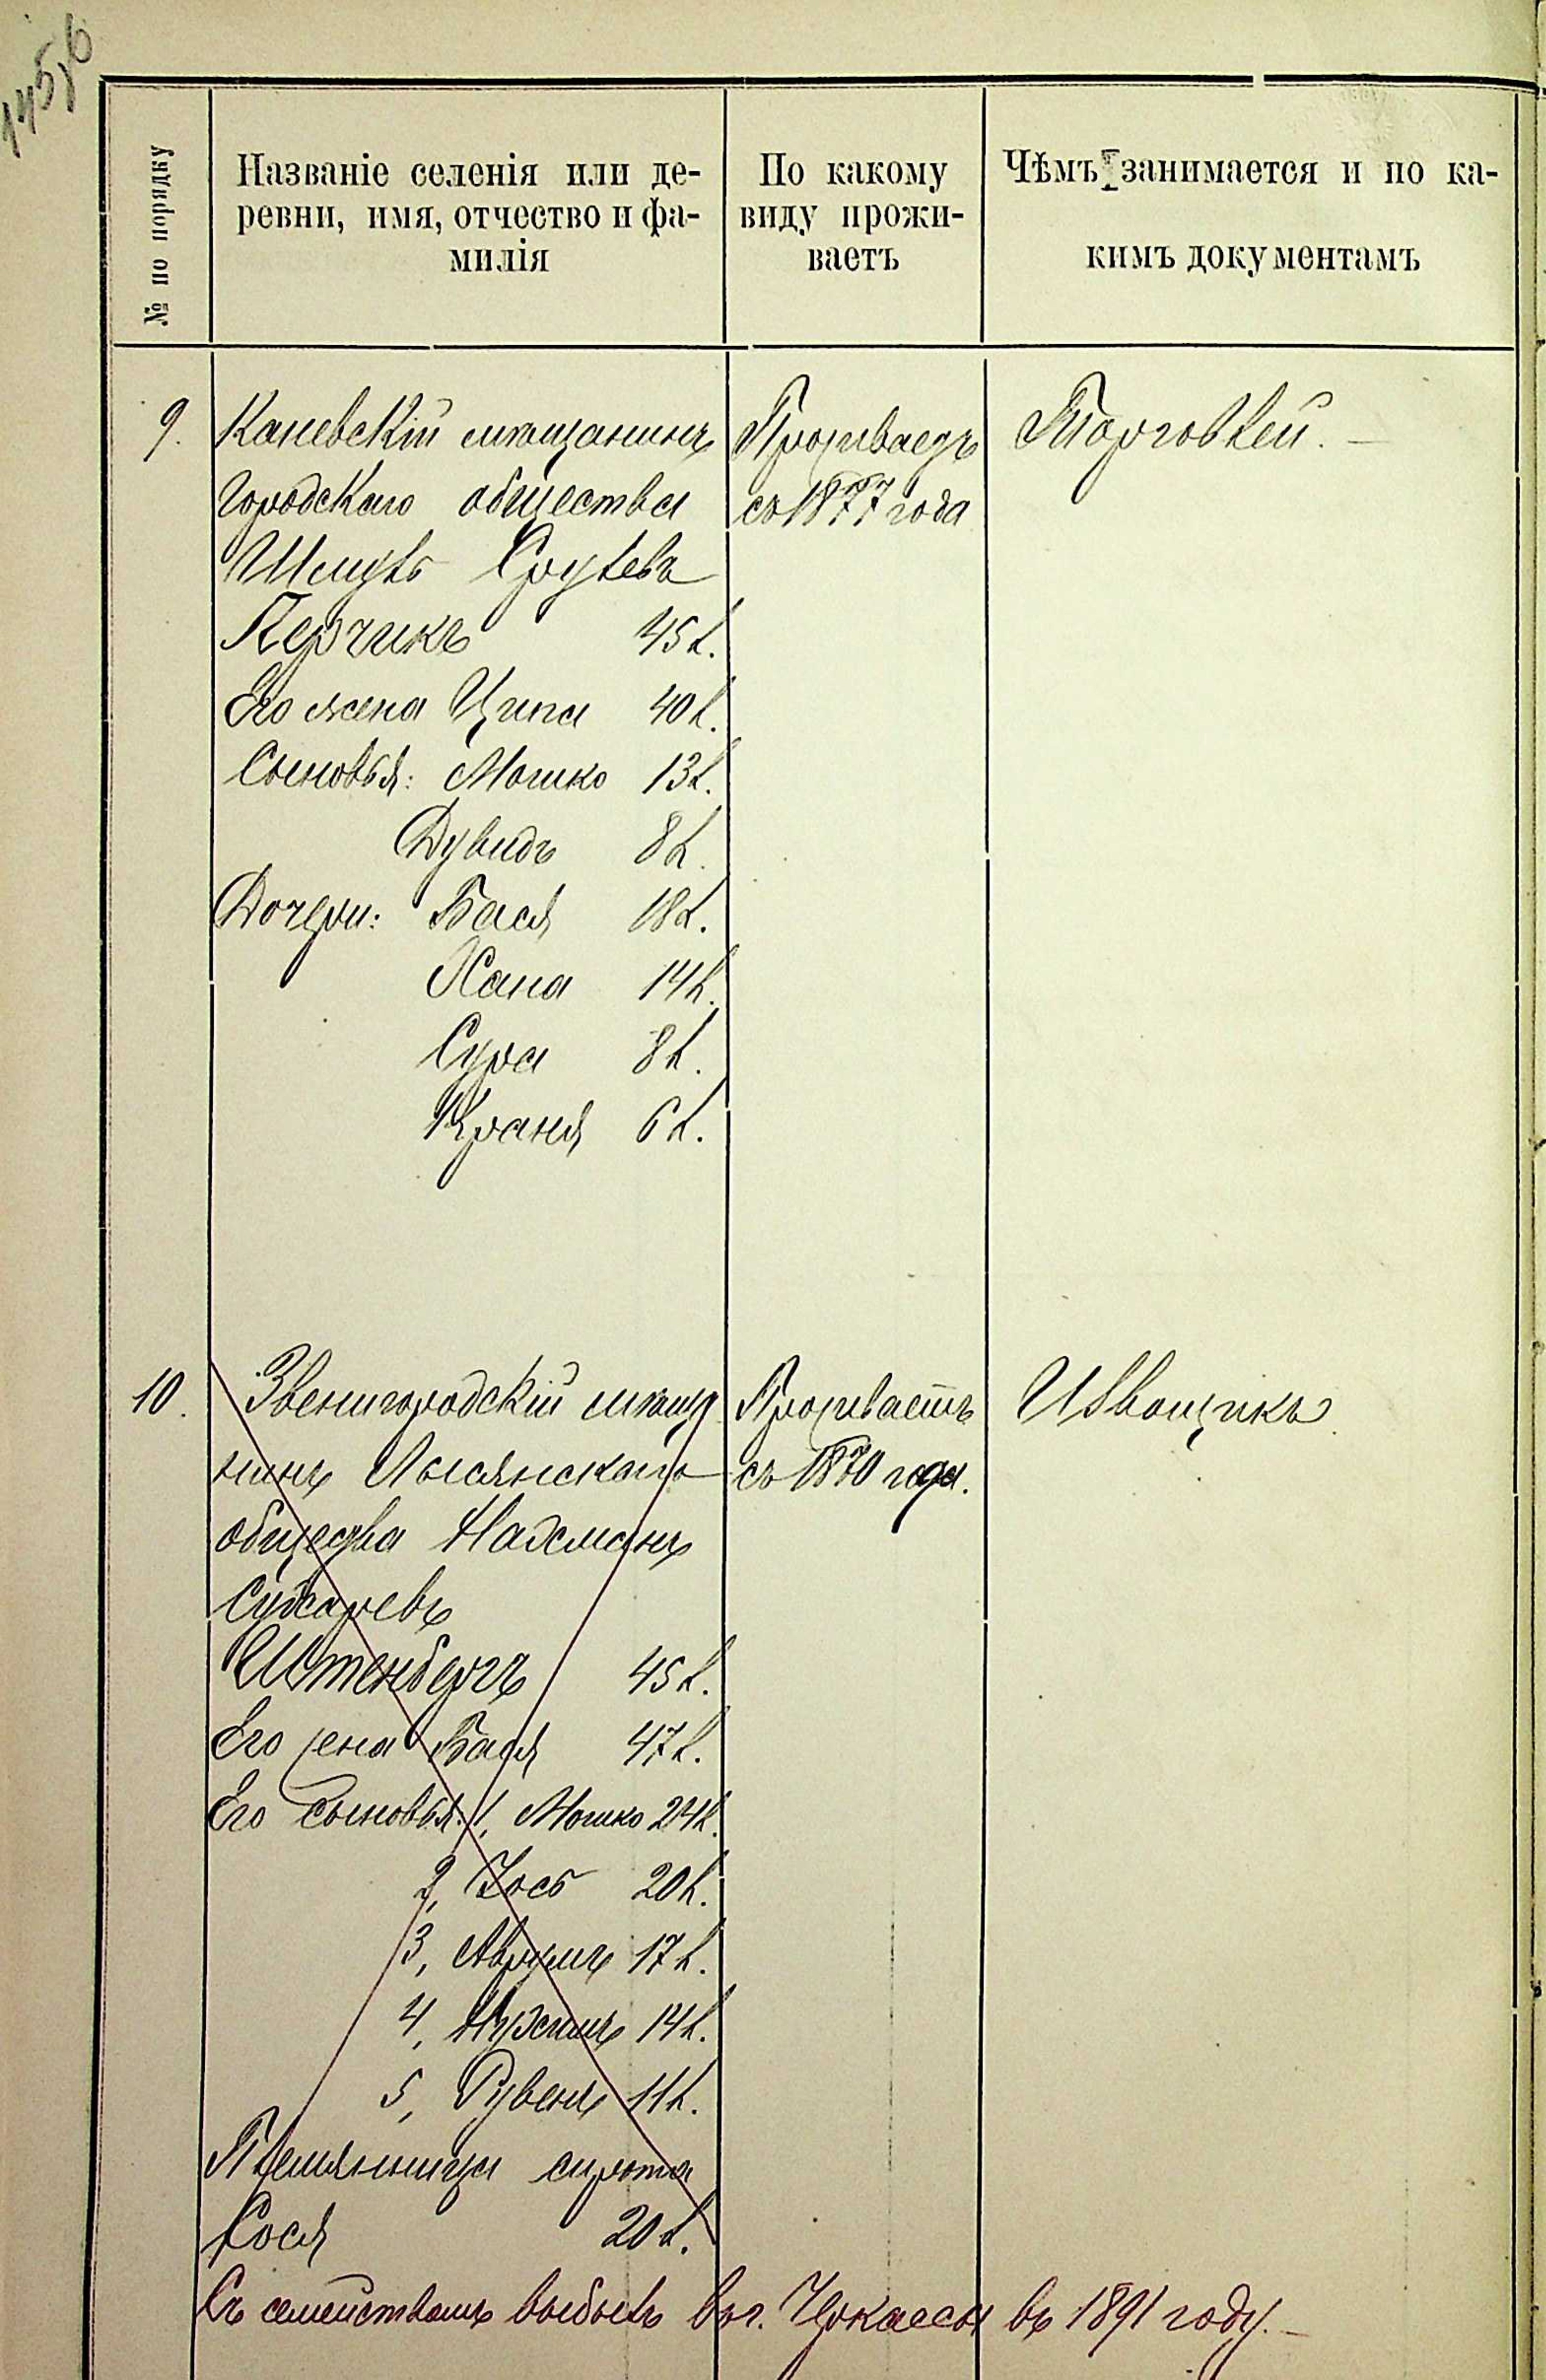 145,б
№ по порядку
Названіе селенія или де-
ревни, имя, отчество и фа-
милія
По какому
виду прожи-
ваетъ
Чѣмъ занимается и по ка-
кимъ документамъ
9.
Каневскій мѣщанинъ
городскаго общества
Шмуль Срулевъ
Перчикъ 45 л.
Его жена Ципа 40 л.
Сыновья: Мошко 13 л.
Дувидъ 8 л.
Дочери: Бася 18 л.
Хана 14 л.
Сура 8 л.
Краня 6 л.
Проживаетъ
съ 1877 года
Торговлей. —
10.
Звенигородскій мѣща
нинъ Лысянскаго
общества Нахманъ
Сухаревъ
Штенбергъ 45 л.
Его жена Бася 47 л.
Его сыновья: 1, Мошко 24 л.
2, Іось 20 л.
3, Аврумъ 17 л.
4, Нухимъ 14 л.
5, Рувенъ 11 л.
Племянница сирота
Сося 20 л.
Проживаетъ
съ 1870 года.
Извощикъ
Съ семействомъ выбылъ въ г. Черкассы въ 1891 году. —